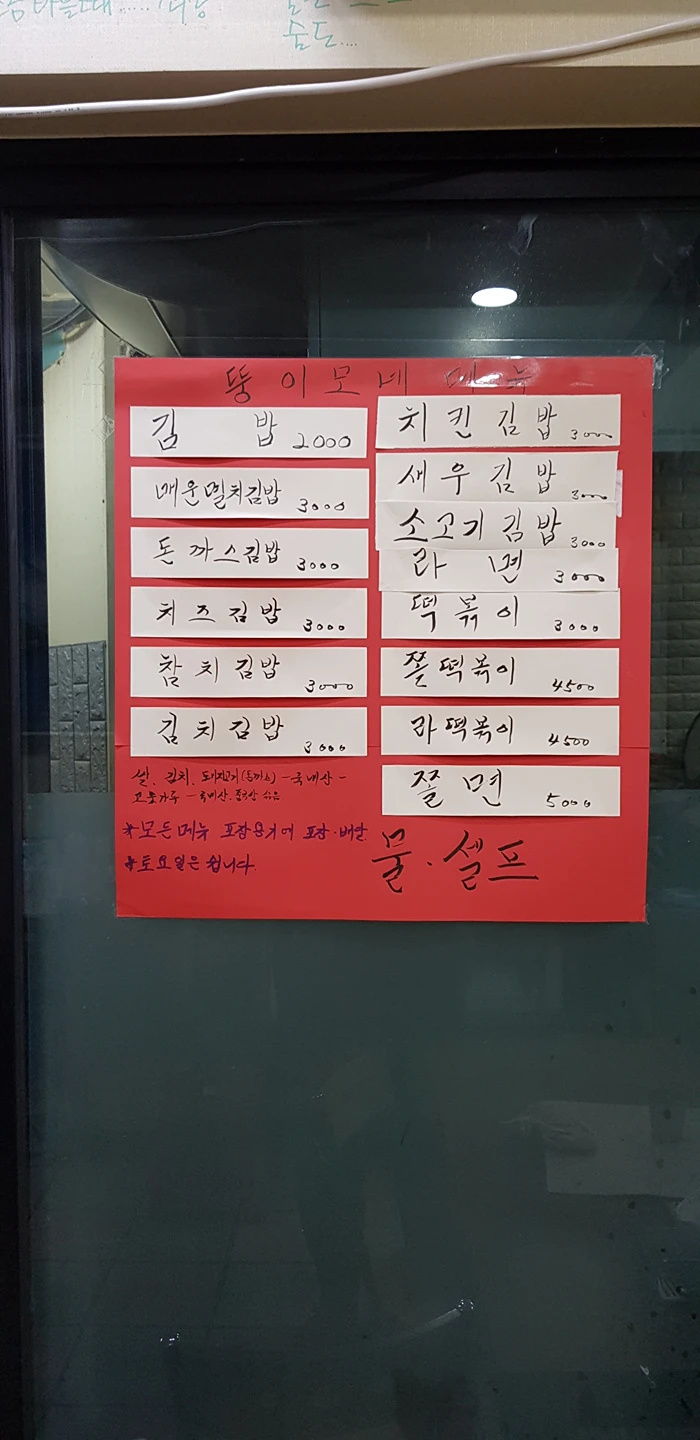 숨도....
뚱이모네 메뉴
김 밥 2000
매운멸치김밥 3000
돈까스김밥 3000
치즈김밥 3000
참치김밥 3000
김치김밥 3000
치킨김밥 3000
새우김밥 3000
소고기김밥 3000
라면 3000
떡볶이 3000
쫄떡볶이 4500
라떡볶이 4500
쫄면 5000
쌀, 김치, 돼지고기(돈까스) - 국내산 -
고춧가루 - 국내산, 중국산 섞음
*모든메뉴 포장용기에 포장·배달
*토요일은 쉽니다.
물·셀프